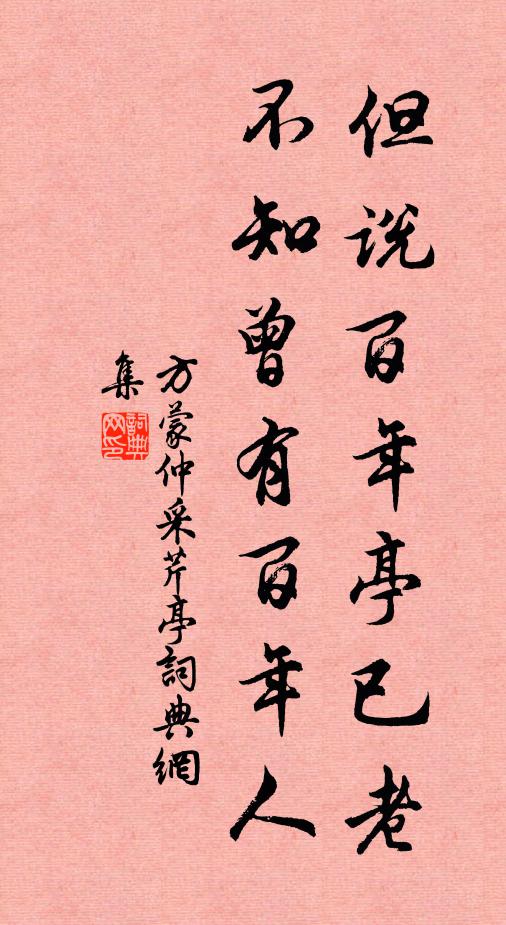 但说百年亭已老
不知曾有百年人
方蒙仲采芹亭詞典網
集
詞典网印